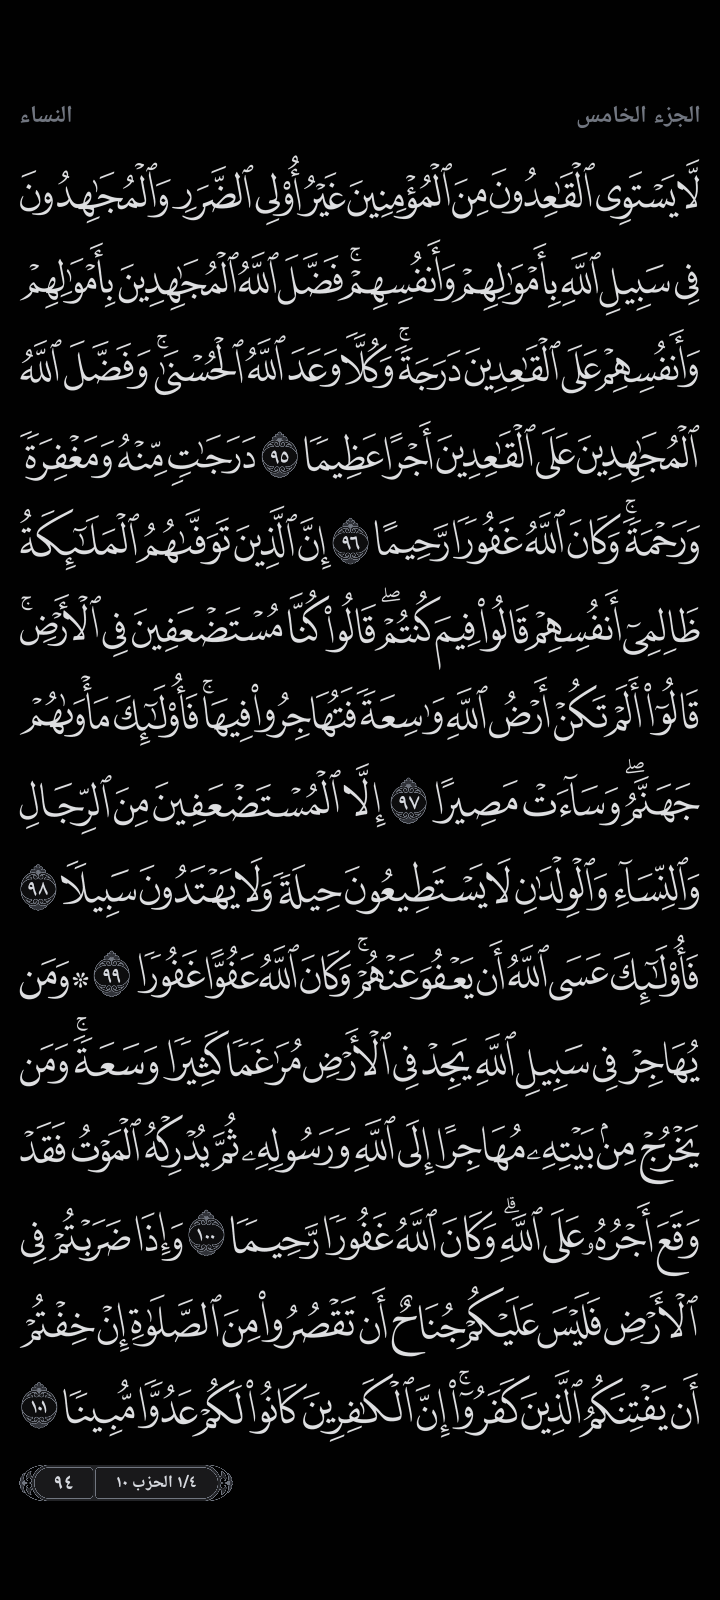 الجزء الخامس
النساء
لَّا يَسْتَوِى ٱلْقَٰعِدُونَ مِنَ ٱلْمُؤْمِنِينَ غَيْرُ أُو۟لِى ٱلضَّرَرِ وَٱلْمُجَٰهِدُونَ
فِى سَبِيلِ ٱللَّهِ بِأَمْوَٰلِهِمْ وَأَنفُسِهِمْ ۚ فَضَّلَ ٱللَّهُ ٱلْمُجَٰهِدِينَ بِأَمْوَٰلِهِمْ
وَأَنفُسِهِمْ عَلَى ٱلْقَٰعِدِينَ دَرَجَةً ۚ وَكُلًّا وَعَدَ ٱللَّهُ ٱلْحُسْنَىٰ ۚ وَفَضَّلَ ٱللَّهُ
ٱلْمُجَٰهِدِينَ عَلَى ٱلْقَٰعِدِينَ أَجْرًا عَظِيمًا ٩٥ دَرَجَٰتٍ مِّنْهُ وَمَغْفِرَةً
وَرَحْمَةً ۚ وَكَانَ ٱللَّهُ غَفُورًا رَّحِيمًا ٩٦ إِنَّ ٱلَّذِينَ تَوَفَّىٰهُمُ ٱلْمَلَٰٓئِكَةُ
ظَالِمِىٓ أَنفُسِهِمْ قَالُوا۟ فِيمَ كُنتُمْ ۖ قَالُوا۟ كُنَّا مُسْتَضْعَفِينَ فِى ٱلْأَرْضِ ۚ
قَالُوٓا۟ أَلَمْ تَكُنْ أَرْضُ ٱللَّهِ وَٰسِعَةً فَتُهَاجِرُوا۟ فِيهَا ۚ فَأُو۟لَٰٓئِكَ مَأْوَىٰهُمْ
جَهَنَّمُ ۖ وَسَآءَتْ مَصِيرًا ٩٧ إِلَّا ٱلْمُسْتَضْعَفِينَ مِنَ ٱلرِّجَالِ
وَٱلنِّسَآءِ وَٱلْوِلْدَٰنِ لَا يَسْتَطِيعُونَ حِيلَةً وَلَا يَهْتَدُونَ سَبِيلًا ٩٨
فَأُو۟لَٰٓئِكَ عَسَى ٱللَّهُ أَن يَعْفُوَ عَنْهُمْ ۚ وَكَانَ ٱللَّهُ عَفُوًّا غَفُورًا ٩٩ ۞ وَمَن
يُهَاجِرْ فِى سَبِيلِ ٱللَّهِ يَجِدْ فِى ٱلْأَرْضِ مُرَٰغَمًا كَثِيرًا وَسَعَةً ۚ وَمَن
يَخْرُجْ مِنۢ بَيْتِهِۦ مُهَاجِرًا إِلَى ٱللَّهِ وَرَسُولِهِۦ ثُمَّ يُدْرِكْهُ ٱلْمَوْتُ فَقَدْ
وَقَعَ أَجْرُهُۥ عَلَى ٱللَّهِ ۗ وَكَانَ ٱللَّهُ غَفُورًا رَّحِيمًا ١٠٠ وَإِذَا ضَرَبْتُمْ فِى
ٱلْأَرْضِ فَلَيْسَ عَلَيْكُمْ جُنَاحٌ أَن تَقْصُرُوا۟ مِنَ ٱلصَّلَوٰةِ إِنْ خِفْتُمْ
أَن يَفْتِنَكُمُ ٱلَّذِينَ كَفَرُوٓا۟ ۚ إِنَّ ٱلْكَٰفِرِينَ كَانُوا۟ لَكُمْ عَدُوًّا مُّبِينًا ١٠١
١/٤ الحزب ١٠
٩٤